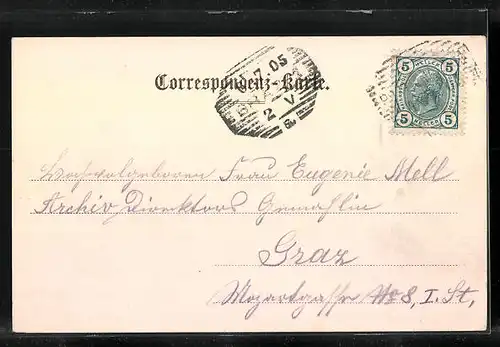 Correspondenz-Karte.
7 05
2 V
5 5
HELLER
5 5
Hochwolgeboren Frau Eugenie Mell
Archiv Direktors Gemahlin
Graz
Mozartgasse No 8, I. St,